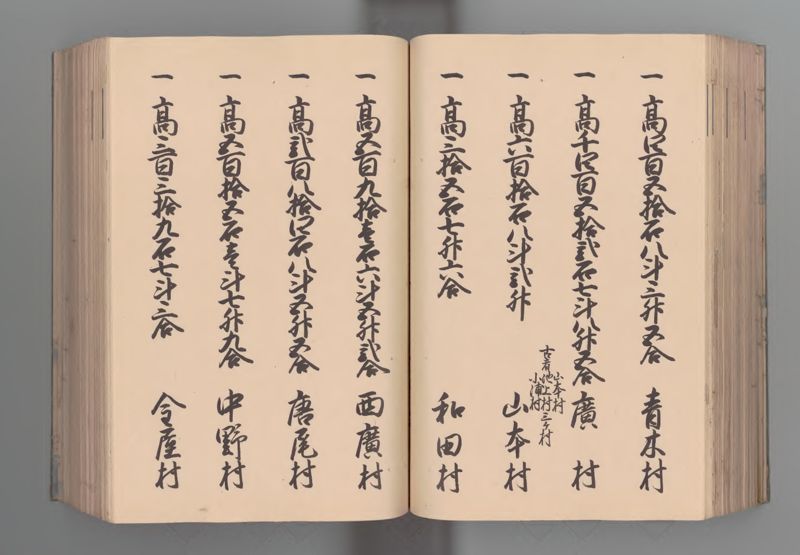 一高四百五拾石八斗三升五合 青木村
一高千四百五拾弐石七斗八升五合 廣村
一高六百拾石八斗弐升 山本村
山本村
古者池上村三ケ村
小浦村
一高三拾五石七升六合 和田村
一高五百九拾壱石六斗五升弐合 西廣村
一高弐百八拾四石八斗五升五合 唐尾村
一高五百拾五石壱斗七升九合 中野村
一高三百三拾九石七斗三合 金屋村